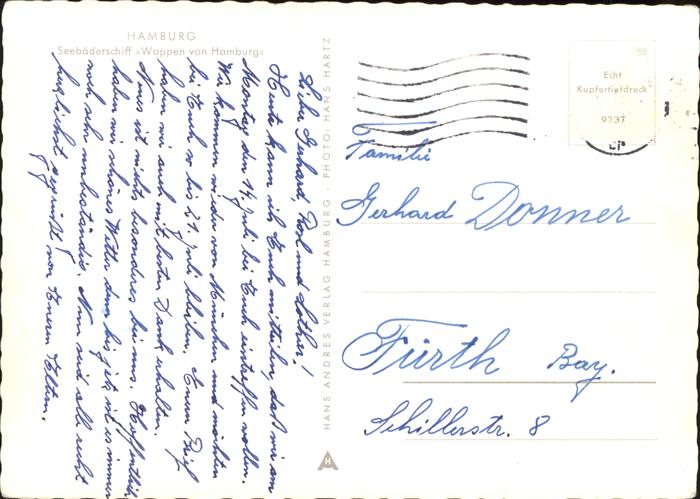 HAMBURG
Seebäderschiff »Wappen von Hamburg«
Liebe Gerhard, Rosl und Lothar!
Heute kann ich Euch mitteilen, daß wir am
Montag den 14. Juli bei Euch eintreffen wollen.
Wir kommen wieder von München und möchten
bei Euch so bis 21. Juli bleiben. Euren Brief
haben wir auch mit besten Dank erhalten.
Neues ist nichts besonderes bei uns. Hoffentlich
haben wir schönes Wetter denn bis jetzt ist es immer
noch sehr unbeständig. Nun seid alle recht
herzlichst gegrüßt von Euren Eltern.
HANS ANDRES VERLAG HAMBURG - PHOTO: HANS HARTZ
H
88
Echt
Kupfertiefdruck
9737
Familie
Gerhard Donner
Fürth Bay.
Schillerstr. 8